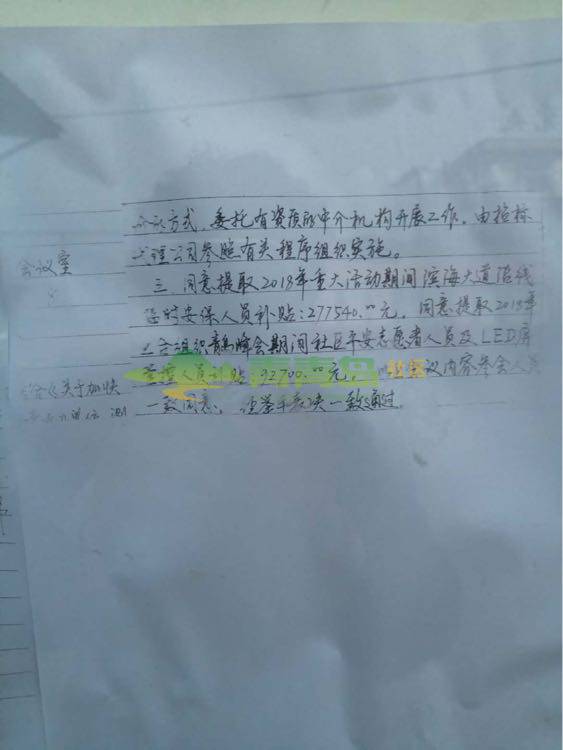 方式，委托有资质的中介机构开展工作，由招标
代理公司参照有关程序组织实施。
会议室
三、同意提取2018年重大活动期间滨海大道沿线
临时安保人员补贴：277540.00元，同意提取2018年
上合组织青岛峰会期间社区平安志愿者人员及LED屏
人员补贴：92700.00元，议内容参会人员
《关于加快
一致同意，经举手表决一致通过。
青青岛
社区